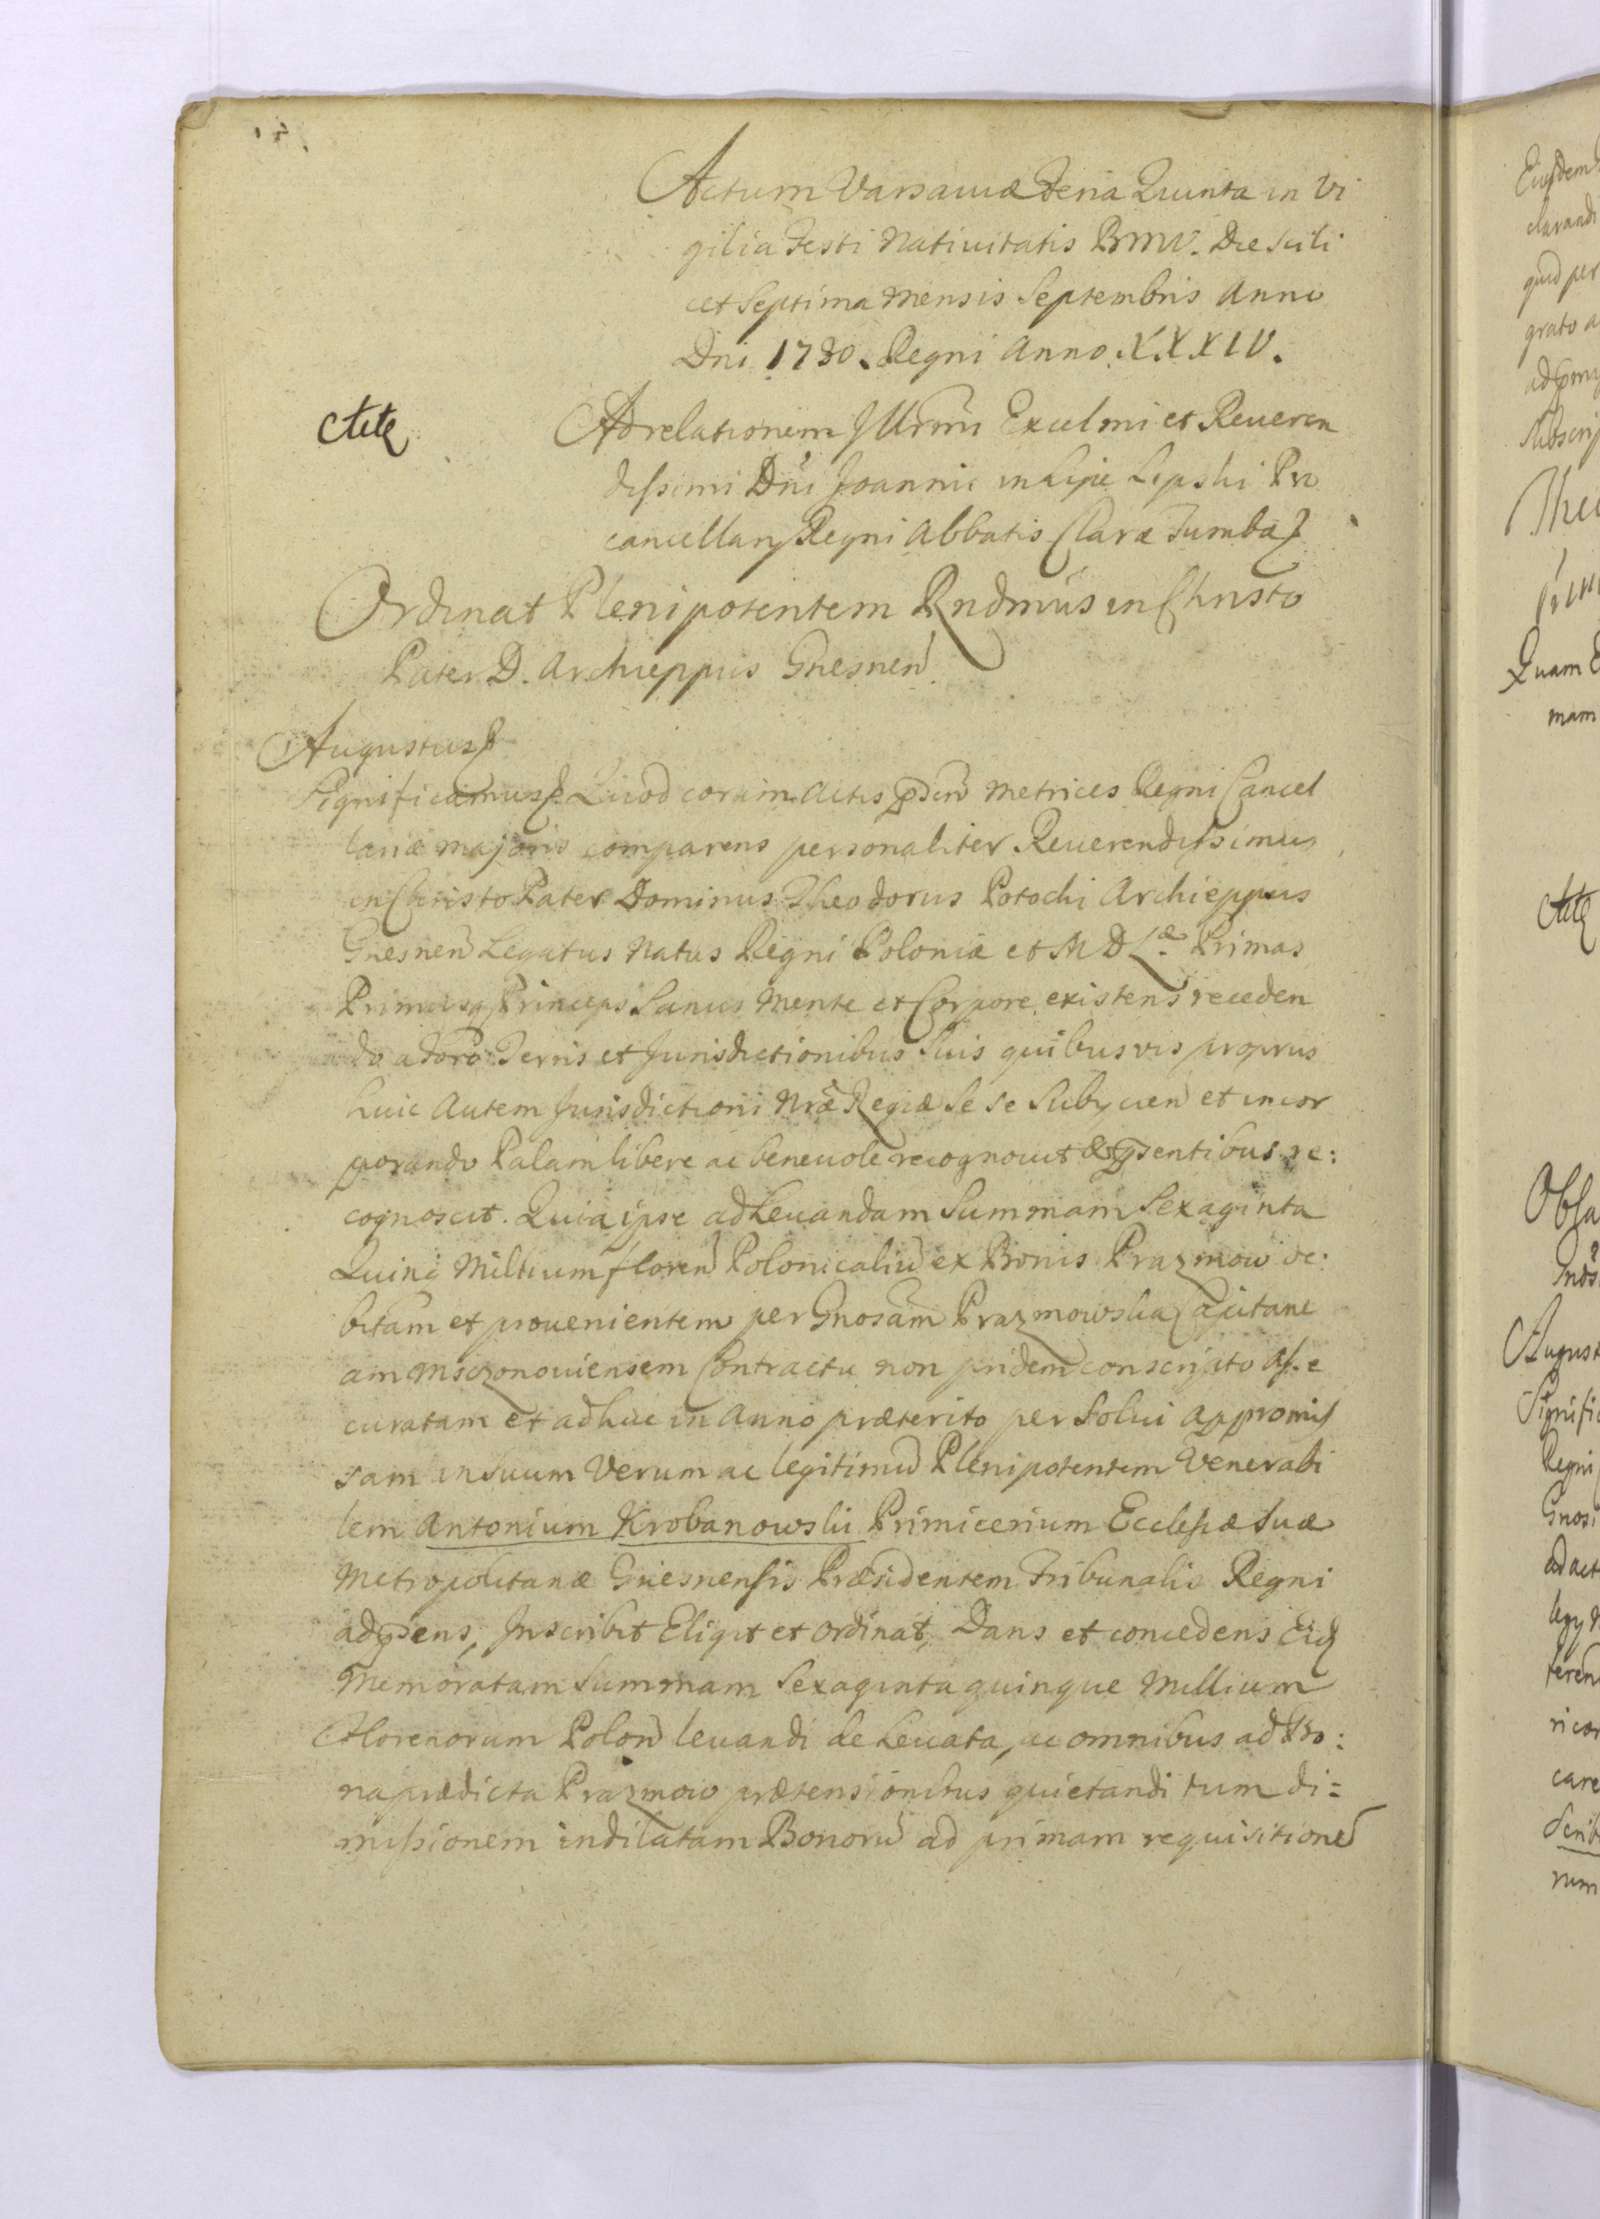 Actum Varsaviæ Feria Quinta in Vi
gilia Festi Nativitatis BMV. Die scili
cet Septima Mensis Septembris Anno
Dni 1730. Regni Anno XXXIV.
Ad relationem Illrmi Excelmi et Reveren
dissimi Dni Joannis in Lipie Lipski Pro
cancellarij Regni Abbatis Claræ Tumbæ
Ordinat Plenipotentem Rndmus in Christo
Pater D. Archieppus Gnesnen
Augustus
Significamus Quod coram Actis pnden Metrices Regni Cancel
lariæ majoris comparens personaliter Reverendissimus
in Christo Pater Dominus Theodorus Potocki Archieppus
Gnesnen Legatus Natus Regni Poloniæ et M D L.æ Primas
Primusq Princeps Sanus Mente et Corpore existens receden
do a Foro Terris et Jurisdictionibus suis quibusvis proprys
huic Autem Jurisdictioni Nræ Regiæ se se Subijcien et incor
porando Palam libere ac benevole recognovit et pnsentibus re:
cognoscit. Quia ipse ad Levandam Summam Sexaginta
Quinq Millium floren Polonicaliu ex Bonis Prazmow de:
bitam et provenientem per Gnosam Prazmowska Capitane
am Msczonoviensem Contractu non pridem conscripto Asse
curatam et adhuc in Anno præterito persolvi Appromis
sam in suum Verum ac legitimu Plenipotentem Venerabi
lem Antonium Krobanowski Primicerium Ecclesiæ Suæ
Metropolitanæ Gnesnensis Præsidentem Tribunalis Regni
ad pnsens, Inscribit Eligit et Ordinat, Dans et concedens Eidq
Memoratam Summam Sexaginta quinque Millium
Florenorum Polon levandi de Levata, ac omnibus ad Bo:
na prædicta Prazmow prætensionibus quietandi tum di=
missionem indilatam Bonoru ad primam requisitione